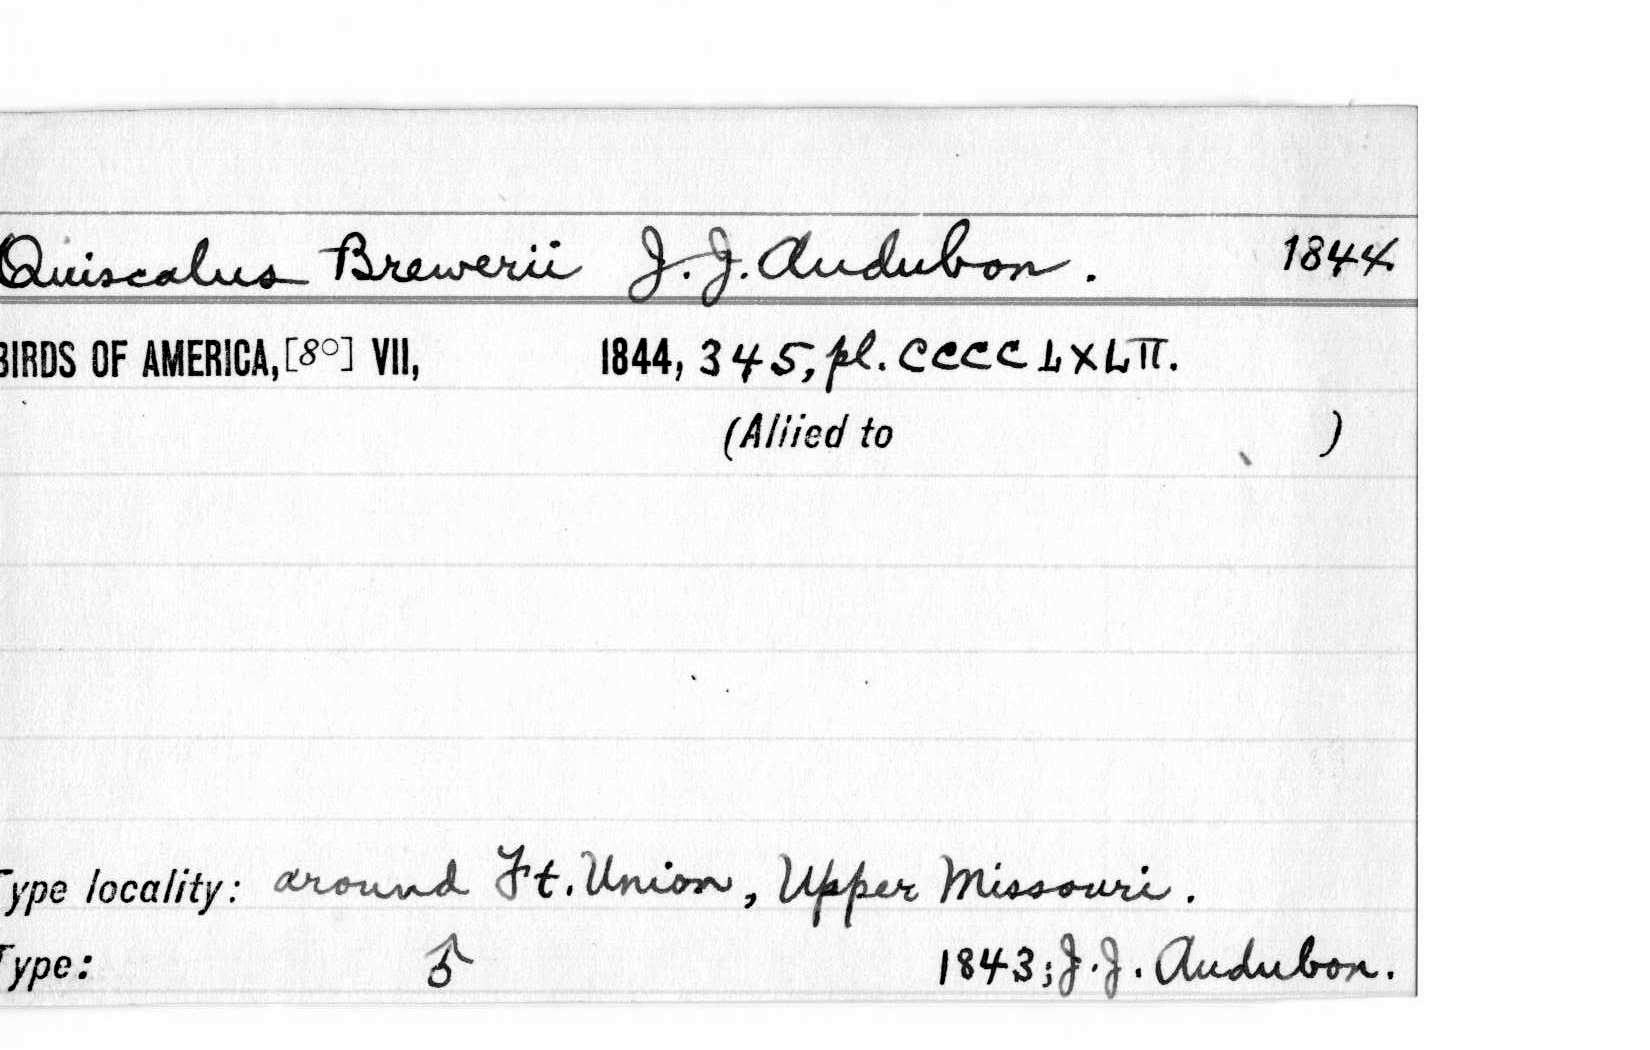 Quiscalus Brewerii J. J. Audubon. 1844
BIRDS OF AMERICA, [8°] VII, 1844, 345, pl. CCCCLXLII.
(Allied to )
Type locality: around Ft. Union, Upper Missouri.
Type: ♂ 1843; J. J. Audubon.